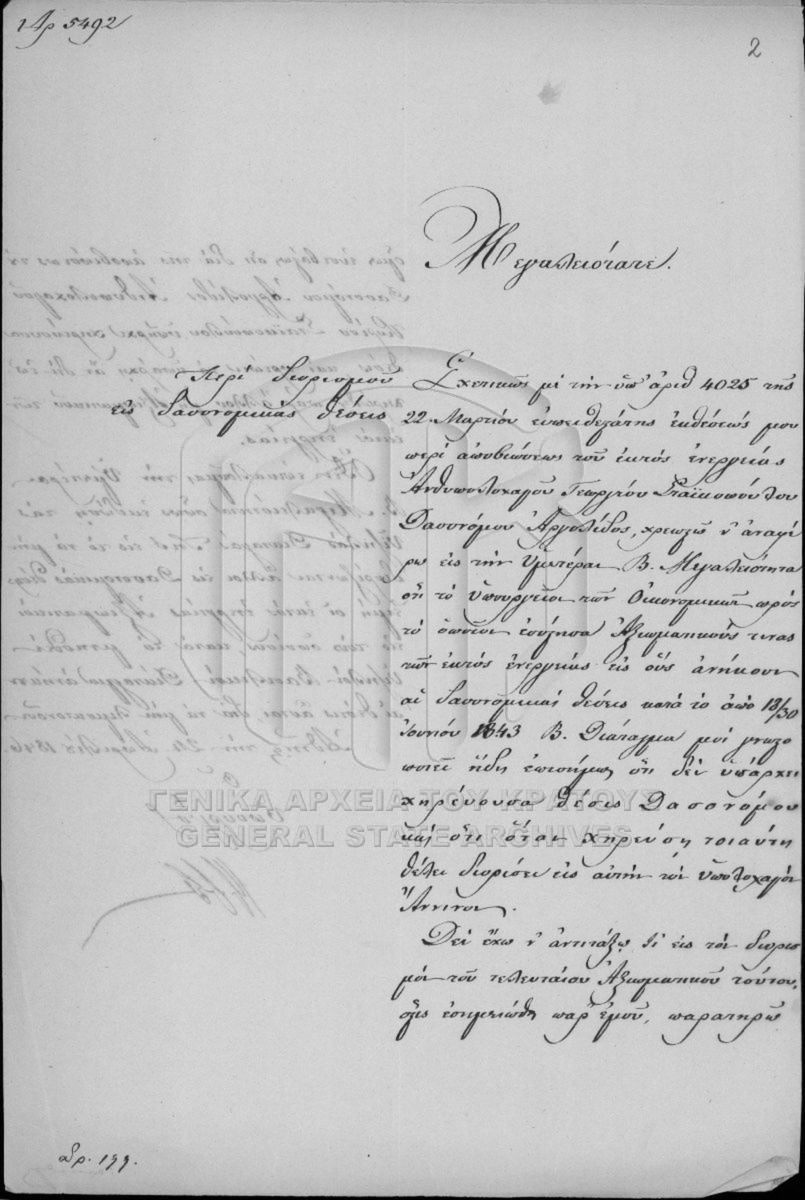 Αρ 5492
2
Μεγαλειότατε.
Περί διορισμοῦ
εἰς δασονομικὰς θέσεις
Σχετικῶς μὲ τὴν ὑπ' ἀριθ 4025 τῆς
22 Μαρτίου εὐπειθεστάτης ἐκθέσεώς μου
περὶ ἀποβιώσεως τοῦ ἐκτὸς ἐνεργείας
Ἀνθυπολοχαγοῦ Γεωργίου Σταϊκοπούλου
Δασονόμου Ἀργολίδος, χρεωστῶ ν' ἀναφέ
ρω εἰς τὴν Ὑμετέραν Β. Μεγαλειότητα
ὅτι τὸ ὑπουργεῖον τῶν Οἰκονομικῶν πρὸς
τὸ ὁποῖον ἐσύστησα Ἀξιωματικούς τινας
τῶν ἐκτὸς ἐνεργείας εἰς οὓς ἀνήκουν
αἱ δασονομικαὶ θέσεις κατὰ τὸ ἀπὸ 18/30
Ἰουνίου 1843 Β. Διάταγμα μοὶ γνωστο
ποιεῖ ἤδη ἐπισήμως ὅτι δὲν ὑπάρχει
χηρεύουσα θέσις Δασονόμου
καὶ ὅτι ὅταν χηρεύσῃ τοιαύτη
θέλει διορίσει εἰς αὐτὴν τὸν ὑπολοχαγὸν
Ἄννινον.
Δὲν ἔχω ν' ἀντιτάξω τι εἰς τὸν διορισ
μὸν τοῦ τελευταίου Ἀξιωματικοῦ τούτου,
ὅστις ἐσημειώθη παρ' ἐμοῦ, παρατηρῶ
ΓΕΝΙΚΑ ΑΡΧΕΙΑ ΤΟΥ ΚΡΑΤΟΥΣ
GENERAL STATE ARCHIVES
199.